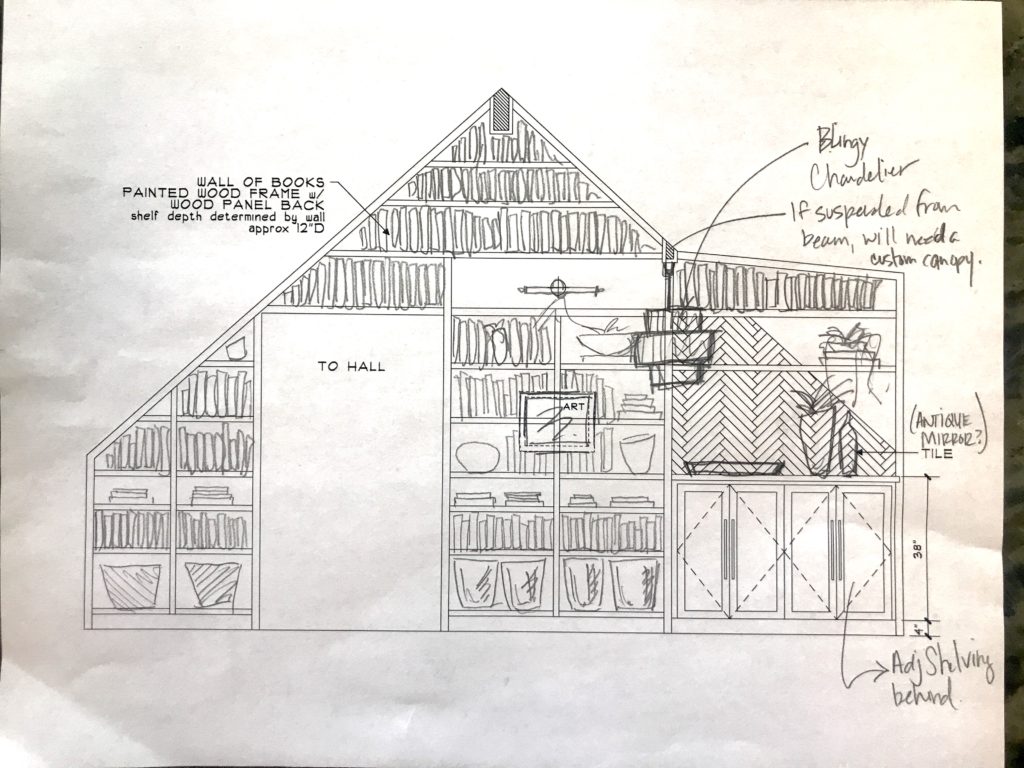 WALL OF BOOKS
PAINTED WOOD FRAME w/
WOOD PANEL BACK
shelf depth determined by wall
approx 12"D
Blingy
Chandelier
If suspended from
beam, will need a
custom canopy.
TO HALL
ART
(ANTIQUE
MIRROR?)
TILE
38"
4"
Adj Shelving
behind